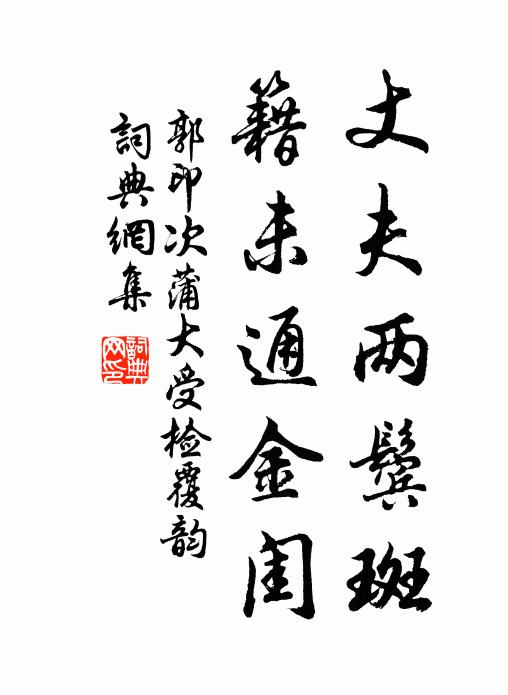 丈夫两鬓斑
籍未通金闺
郭印次蒲大受检覆韵
詞典網集
詞典网印